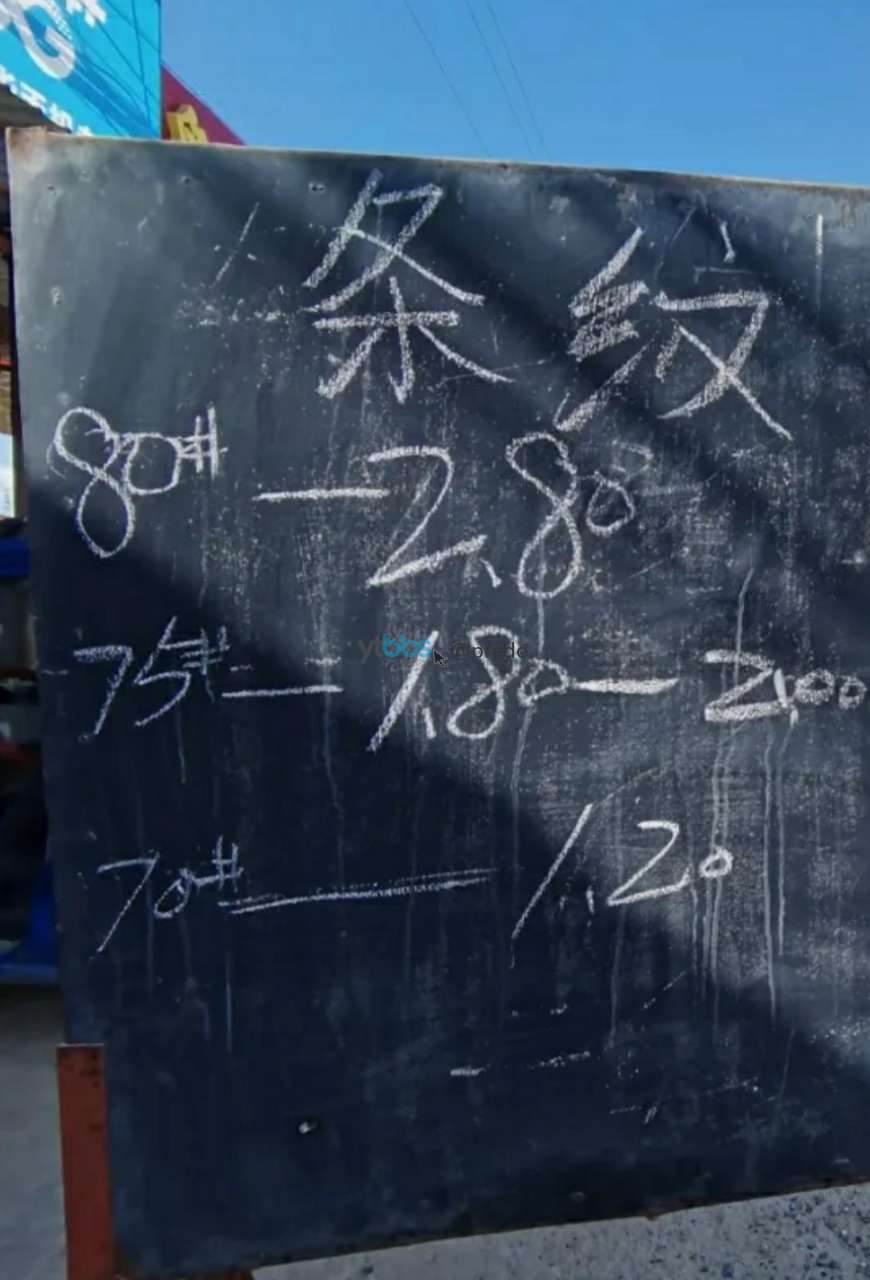 条纹
80# — 2.80
75# — 1.80 — 2.00
70# — 1.20
ytbbs